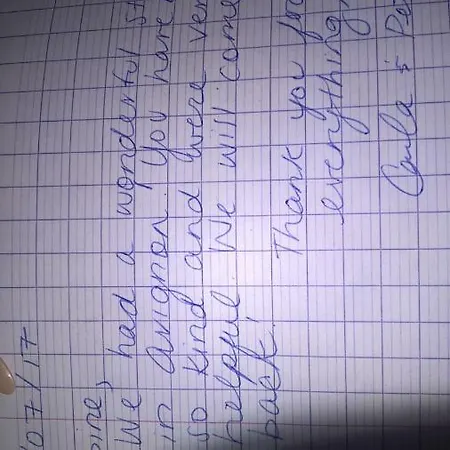 07/17
We had a wonderful
in Avignon. You have
so kind and were
helpful. We will come
back!
Thank you
everything,
&